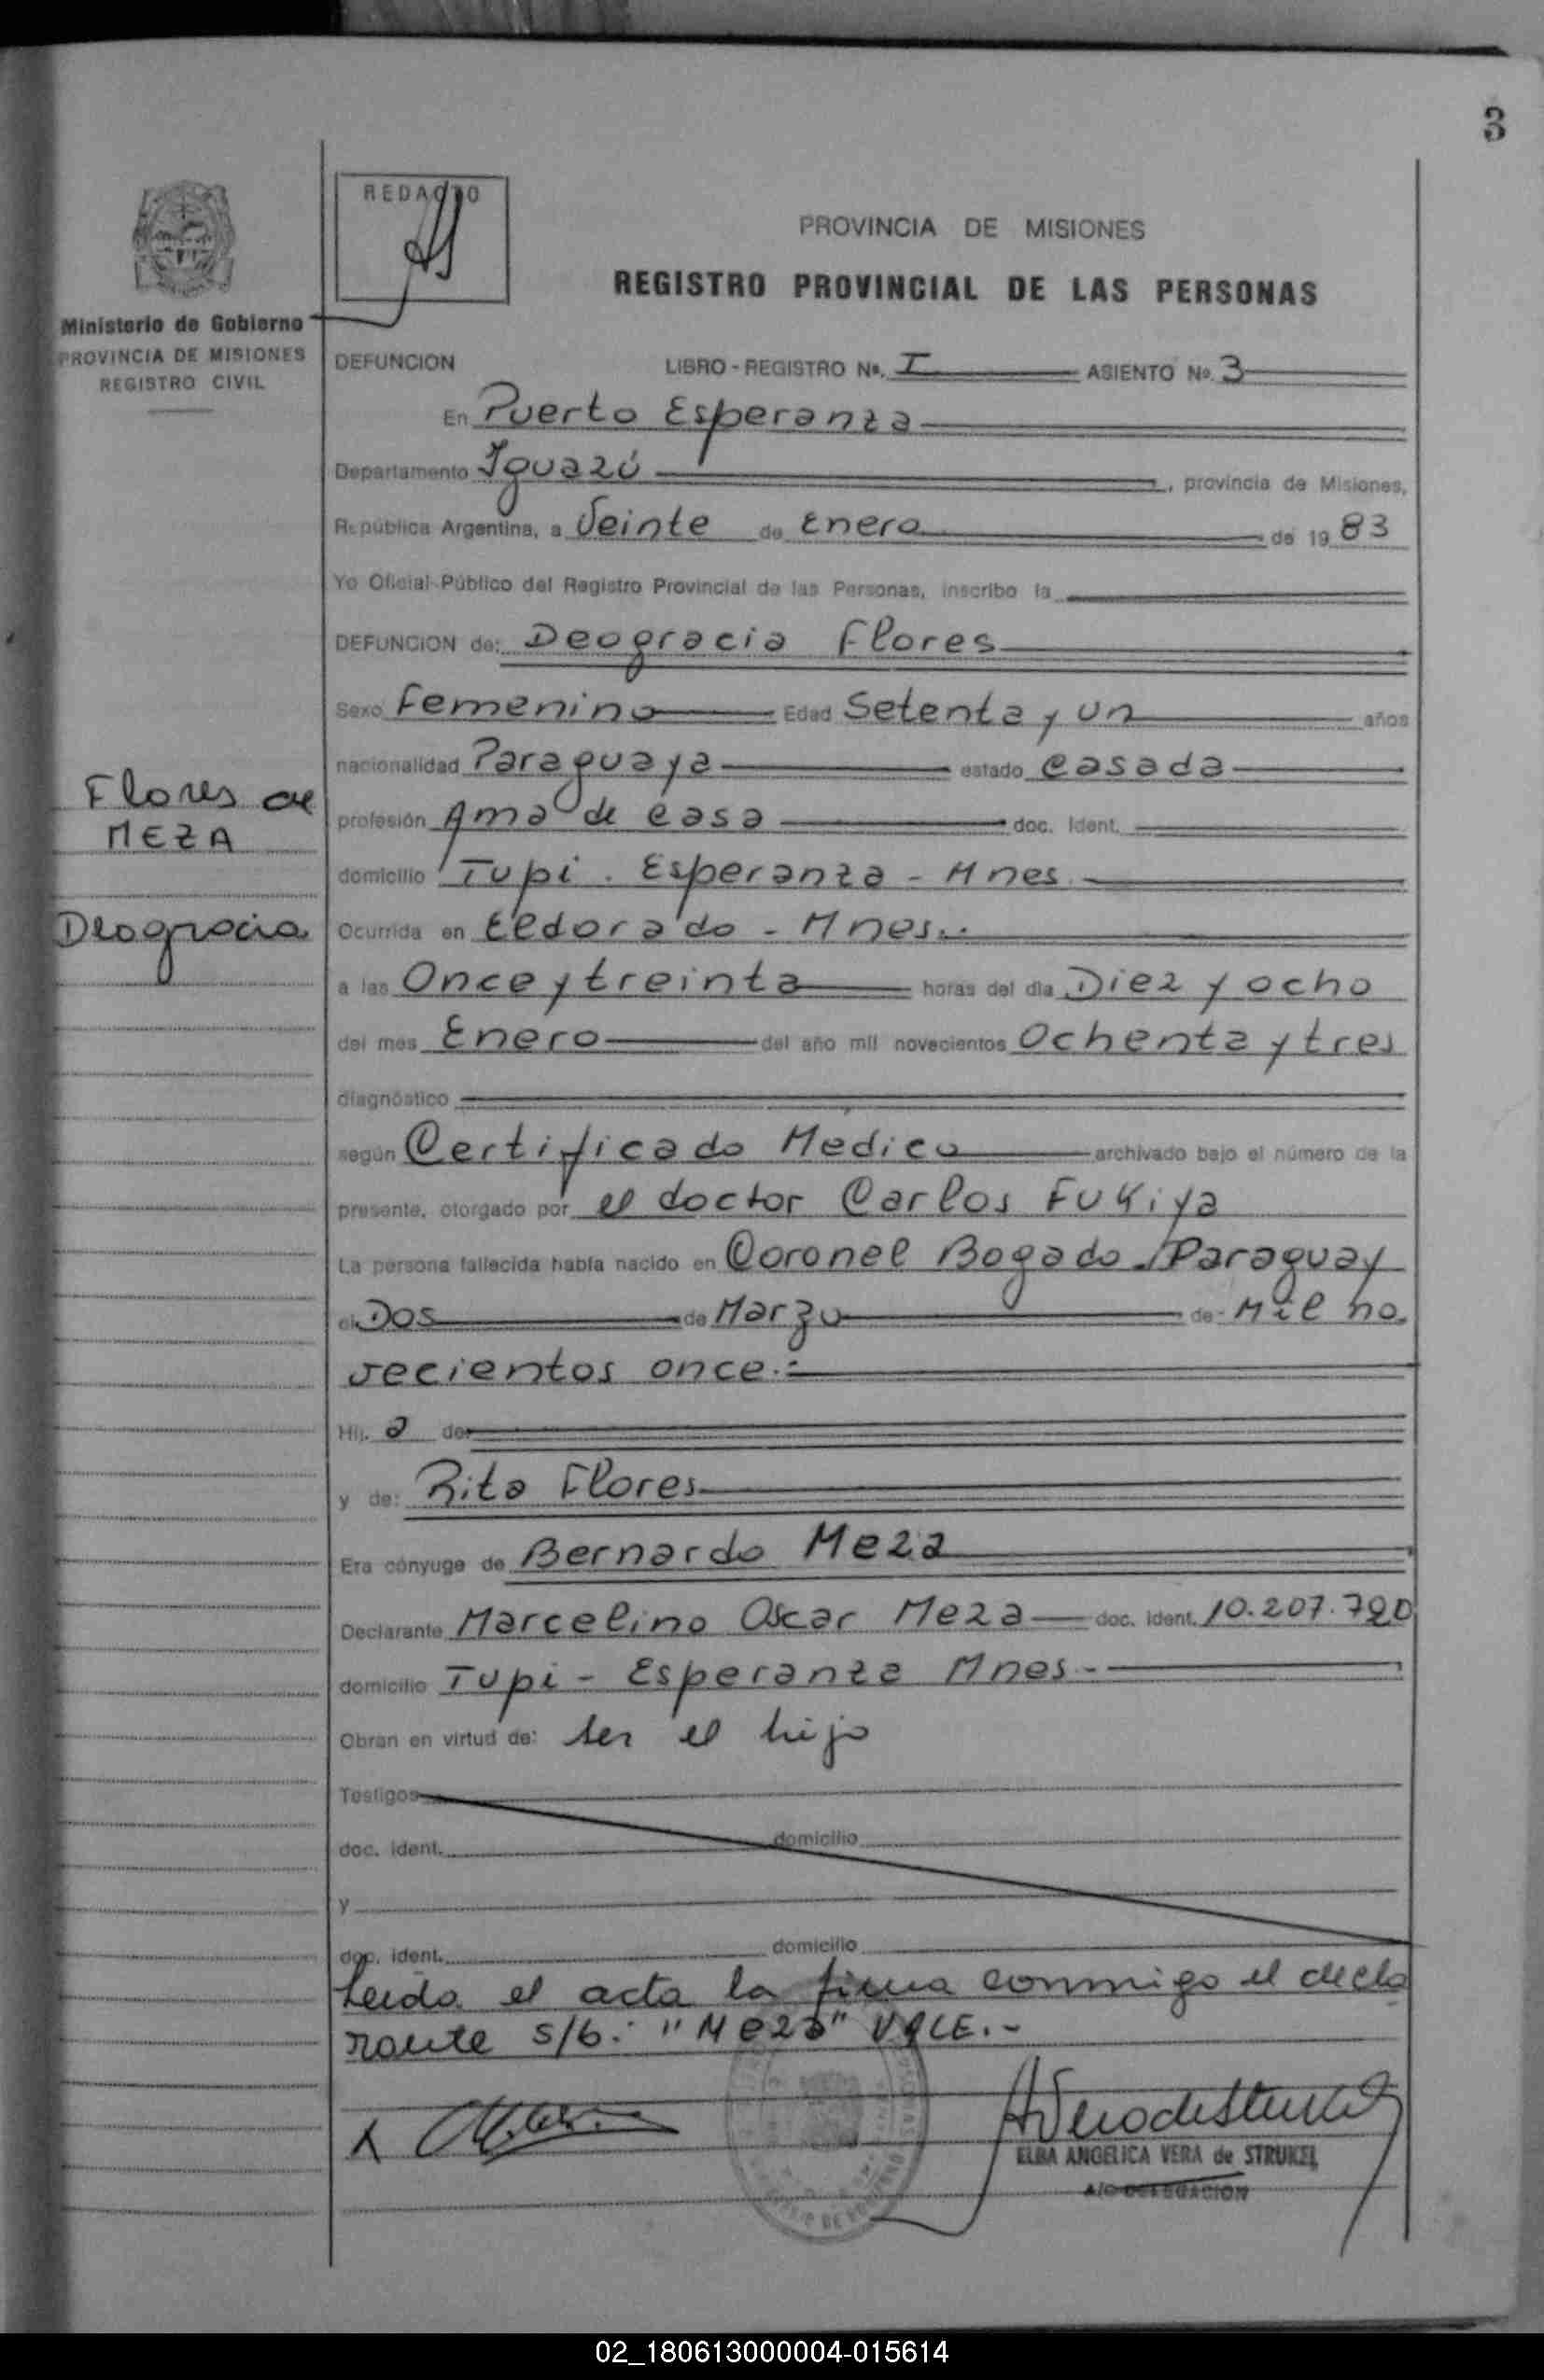 3
REDACTO
PROVINCIA DE MISIONES
REGISTRO PROVINCIAL DE LAS PERSONAS
Ministerio de Gobierno
PROVINCIA DE MISIONES
REGISTRO CIVIL
DEFUNCION LIBRO - REGISTRO Nº. I ASIENTO Nº. 3
En Puerto Esperanza
Departamento Iguazú , provincia de Misiones,
República Argentina, a Veinte de Enero de 19 83
Yo Oficial Público del Registro Provincial de las Personas, inscribo la
DEFUNCION de: Deogracia Flores
Sexo Femenino Edad Setenta y un años
nacionalidad Paraguaya estado casada
Flores de
MEZA
Deogracia
profesión Ama de casa doc. ident.
domicilio Tupi. Esperanza - Mnes.
Ocurrida en Eldorado - Mnes..
a las Once y treinta horas del día Diez y ocho
del mes Enero del año mil novecientos Ochenta y tres
diagnóstico
según Certificado Medico archivado bajo el número de la
presente, otorgado por el doctor Carlos Fukiya
La persona fallecida había nacido en Coronel Bogado - Paraguay
el Dos de Marzo de Mil no.
vecientos once.-
Hij. a de
y de: Rita Flores
Era cónyuge de Bernardo Meza
Declarante Marcelino Oscar Meza doc. ident. 10.207.790
domicilio Tupi - Esperanza Mnes.-
Obran en virtud de: ser el hijo
Testigos
doc. ident. domicilio
y
doc. ident. domicilio
Leida el acta la firma conmigo el decla
rante s/b: "Meza" VALE.-
ELBA ANGELICA VERA de STRUKEL
A/C DELEGACION
02_180613000004-015614